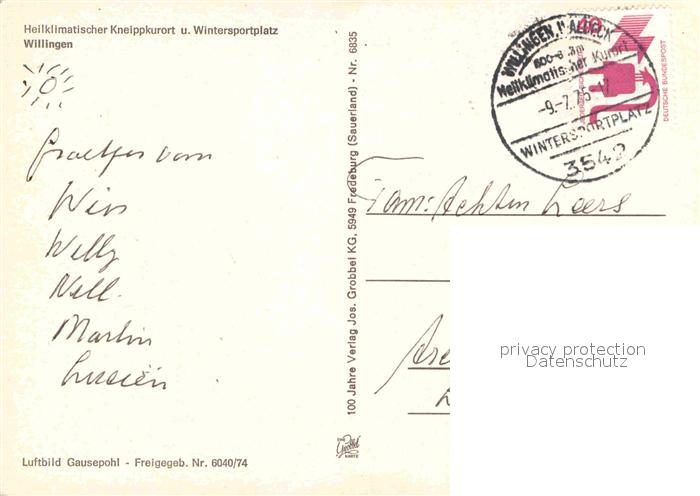 Heilklimatischer Kneippkurort u. Wintersportplatz
Willingen
Graetjes vom
Wies
Willy
Nell.
Martin
Lucien
Luftbild Gausepohl - Freigegeb. Nr. 6040/74
100 Jahre Verlag Jos. Grobbel KG, 5949 Fredeburg (Sauerland) - Nr. 6835
Grobbel
KARTE
WILLINGEN, WALDECK
Heilklimatischer Kurort
-9.-7.75-17
WINTERSPORTPLATZ
3542
40
DEUTSCHE BUNDESPOST
Fam: Achten Leers
privacy protection
Datenschutz